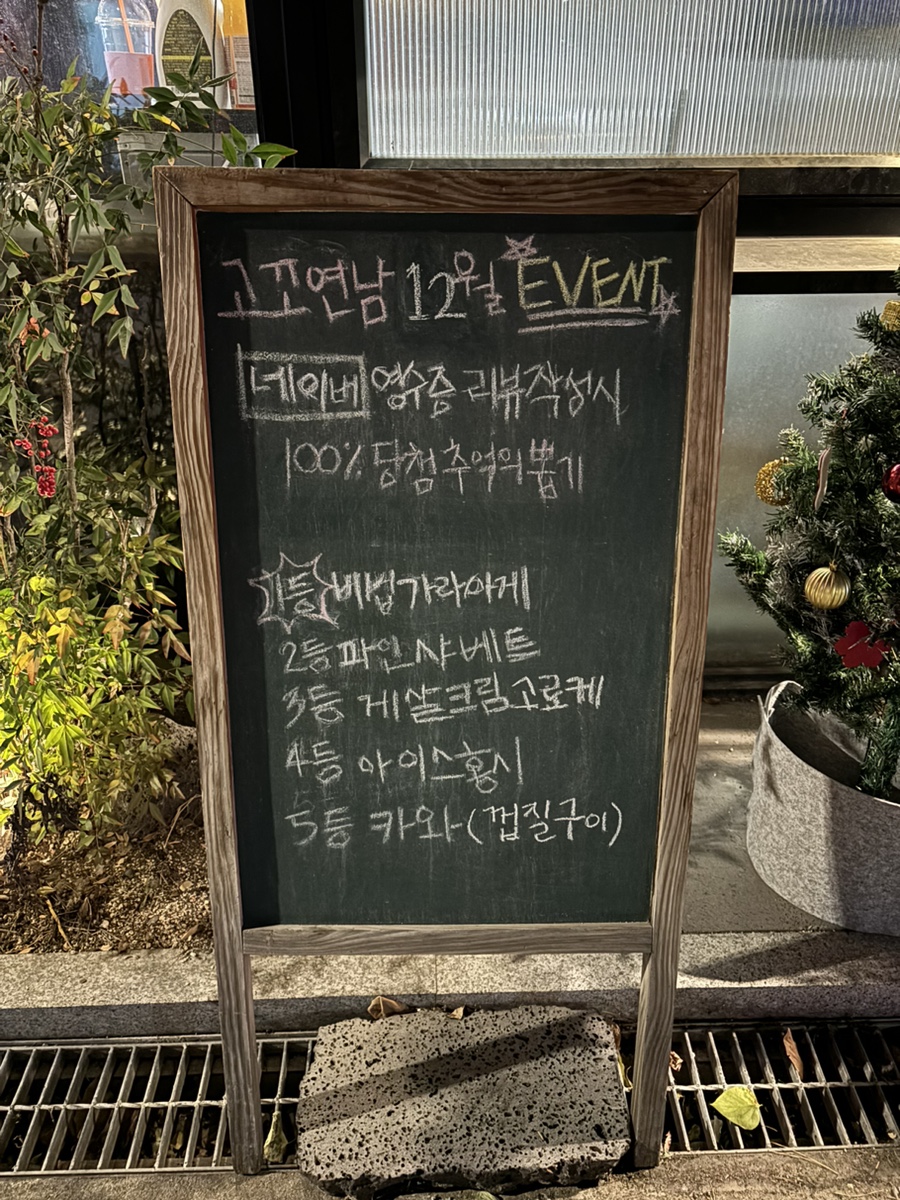 고꼬연남 12월 EVENT
네이버 영수증 리뷰작성시
100% 당첨 추억의 뽑기
1등 비법가라아게
2등 파인샤베트
3등 게살크림고로케
4등 아이스황시
5등 카와(껍질구이)